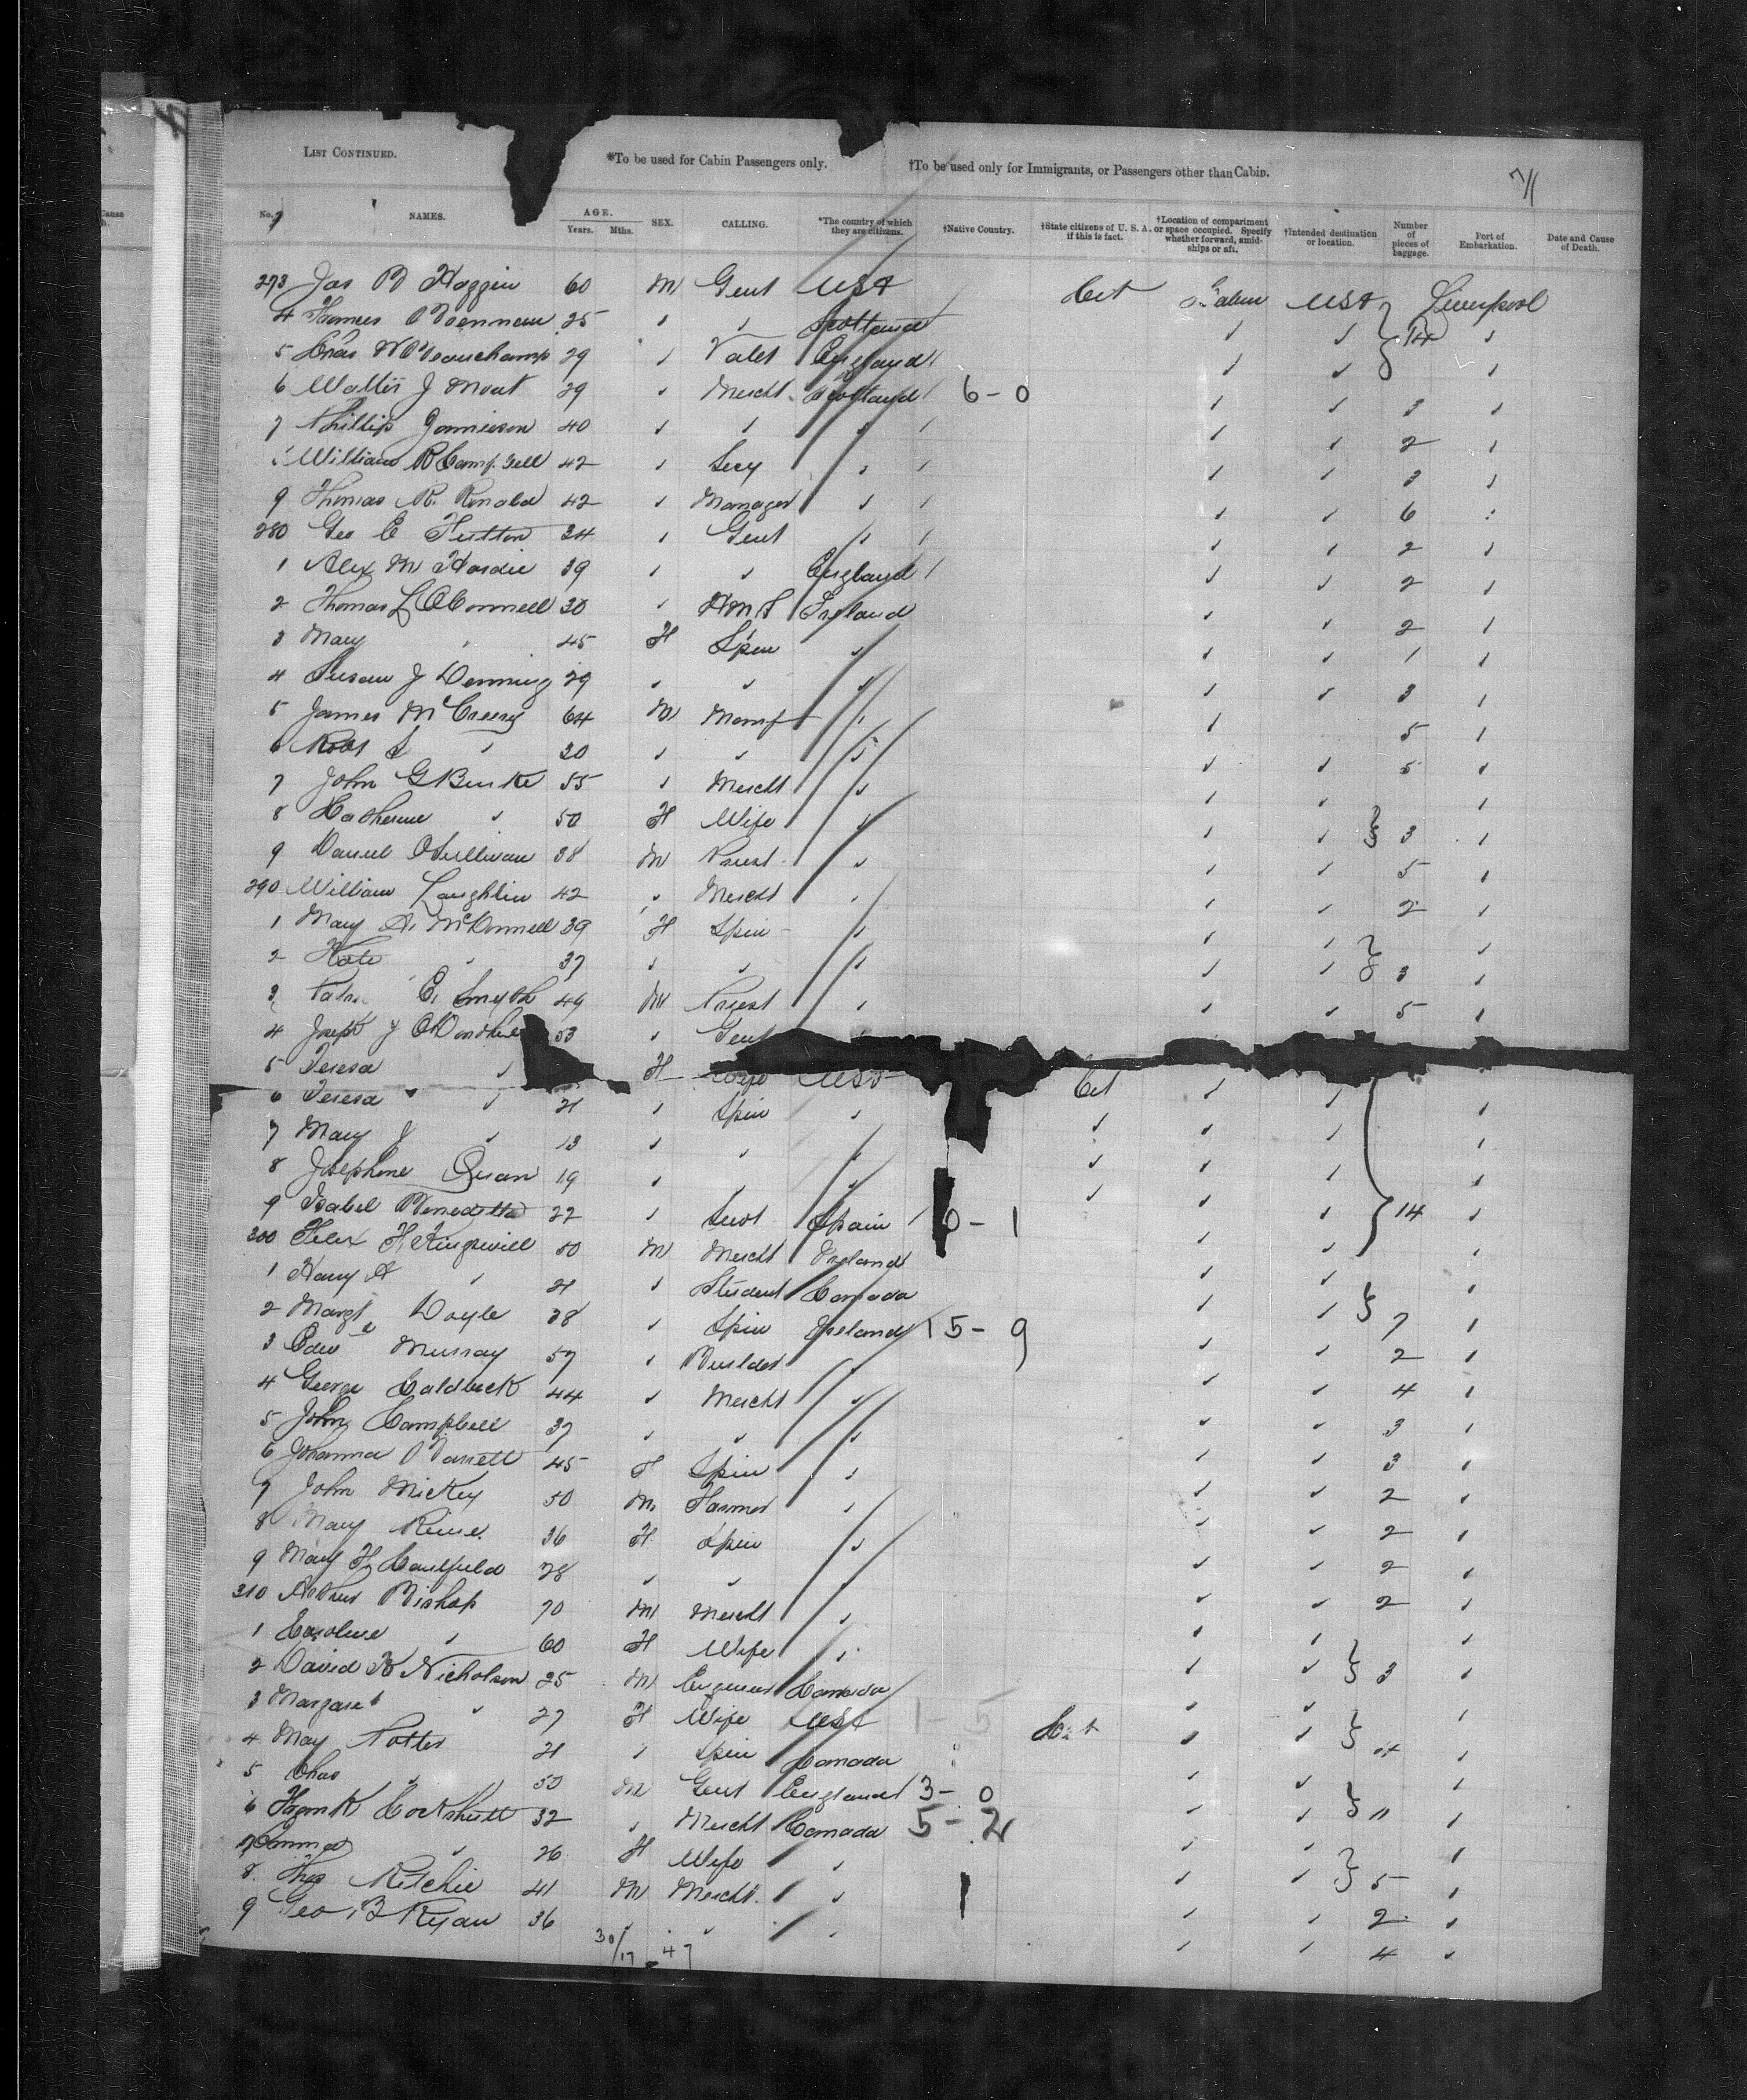 LIST CONTINUED. *To be used for Cabin Passengers only. †To be used only for Immigrants, or Passengers other than Cabin.
No. NAMES. AGE. Years. Mths. SEX. CALLING. *The country of which they are citizens. †Native Country. †State citizens of U. S. A. if this is fact. †Location of compartment or space occupied. Specify whether forward, amid-ships or aft. †Intended destination or location. Number of pieces of baggage. Port of Embarkation. Date and Cause of Death.
273 Jas B Haggin 60 M Gent USA Cit Saloon USA Liverpool
4 Thomas 25 ✓ ✓ Scotland ✓ ✓ 14 ✓
5 Chas W Beauchamp 29 ✓ Valet England ✓ ✓ ✓
6 Walter J Mout 29 ✓ Mercht Scotland 6 - 0 ✓ ✓ 3 ✓
7 Phillip Jamieson 40 ✓ ✓ ✓ ✓ ✓ 2 ✓
William R Campbell 42 ✓ Secy ✓ ✓ ✓ 3 ✓
9 Thomas R. Ronald 42 ✓ Manager ✓ ✓ ✓ 6
280 Geo E Hutton 34 ✓ Gent ✓ ✓ ✓ 2 ✓
1 Alex M Hardie 39 ✓ ✓ England ✓ ✓ 2 ✓
2 Thomas L OConnell 30 ✓ Ireland ✓ ✓ 2 ✓
3 Mary 45 F Spin ✓ ✓ ✓ 1 ✓
4 Susan J Denning 29 ✓ ✓ ✓ ✓ ✓ 3 ✓
5 James McCreery 64 M Manf ✓ ✓ 5 ✓
6 Robt S ✓ 30 ✓ ✓ ✓ ✓ ✓ 5 ✓
7 John G Burke 55 ✓ Mercht ✓ ✓ ✓ ✓
8 Catherine ✓ 50 F Wife ✓ ✓ ✓ 3 ✓
9 Daniel OSullivan 38 M Priest ✓ ✓ ✓ 5 ✓
290 William Laughlin 42 ✓ Mercht ✓ ✓ ✓ 2 ✓
1 Mary A. McDonnell 39 F Spin ✓ ✓ ✓ ✓
2 Kate 37 ✓ ✓ ✓ ✓ ✓ 3 ✓
3 E. Smyth 49 M Priest ✓ ✓ ✓ 5 ✓
4 Joseph J 53 ✓ Gent
5 Teresa ✓ F Wife USA Cit ✓ ✓ ✓
6 Teresa ✓ 21 ✓ Spin ✓ ✓ ✓ ✓ ✓
7 Mary J ✓ 13 ✓ ✓ ✓ ✓ ✓ ✓ ✓
8 Josephine Quan 19 ✓ ✓ ✓ ✓ ✓ ✓ 14 ✓
9 Isabel Benedetto 22 ✓ Servt Spain 0 - 1 ✓ ✓ ✓
300 Felix H Kingwill 50 M Mercht Ireland ✓ ✓ ✓
1 Harry A ✓ 21 ✓ Student Canada ✓ ✓ 7 ✓
2 Margt Doyle 38 ✓ Spin Ireland 15 - 9 ✓ ✓ 2 ✓
3 Edwd Murray 57 ✓ Builder ✓ ✓ ✓ 4 ✓
4 George Caldbeck 44 ✓ Mercht ✓ ✓ ✓ 3 ✓
5 John Campbell 37 ✓ ✓ ✓ ✓ ✓ 3 ✓
6 Johanna 45 F Spin ✓ ✓ ✓ 2 ✓
7 John Mickey 50 M Farmer ✓ ✓ ✓ 2 ✓
8 Mary 36 F Spin ✓ ✓ ✓ 2 ✓
9 Mary F Caulfield 28 ✓ ✓ ✓ ✓ ✓ 2 ✓
310 Bishop 70 M Mercht ✓ ✓ ✓ ✓
1 Caroline ✓ 60 F Wife ✓ ✓ ✓ 3 ✓
2 David Nicholson 25 M Engineer Canada ✓ ✓ ✓
3 Margaret ✓ 27 F Wife USA 1 - 5 Cit ✓ ✓ ✓
4 May Potter 21 ✓ Spin Canada ✓ ✓ ✓
5 Chas ✓ 50 M Gent England 3 - 0 ✓ ✓ 11 ✓
6 Cockshutt 32 ✓ Mercht Canada 5 - 2 ✓ ✓ ✓
7 ✓ 26 F Wife ✓ ✓ ✓ 5 ✓
8 Thos Ritchie 41 M Mercht ✓ ✓ ✓ 2 ✓
9 Geo B Ryan 36 ✓ ✓ ✓ ✓ ✓ 4 ✓
30/17 - 47